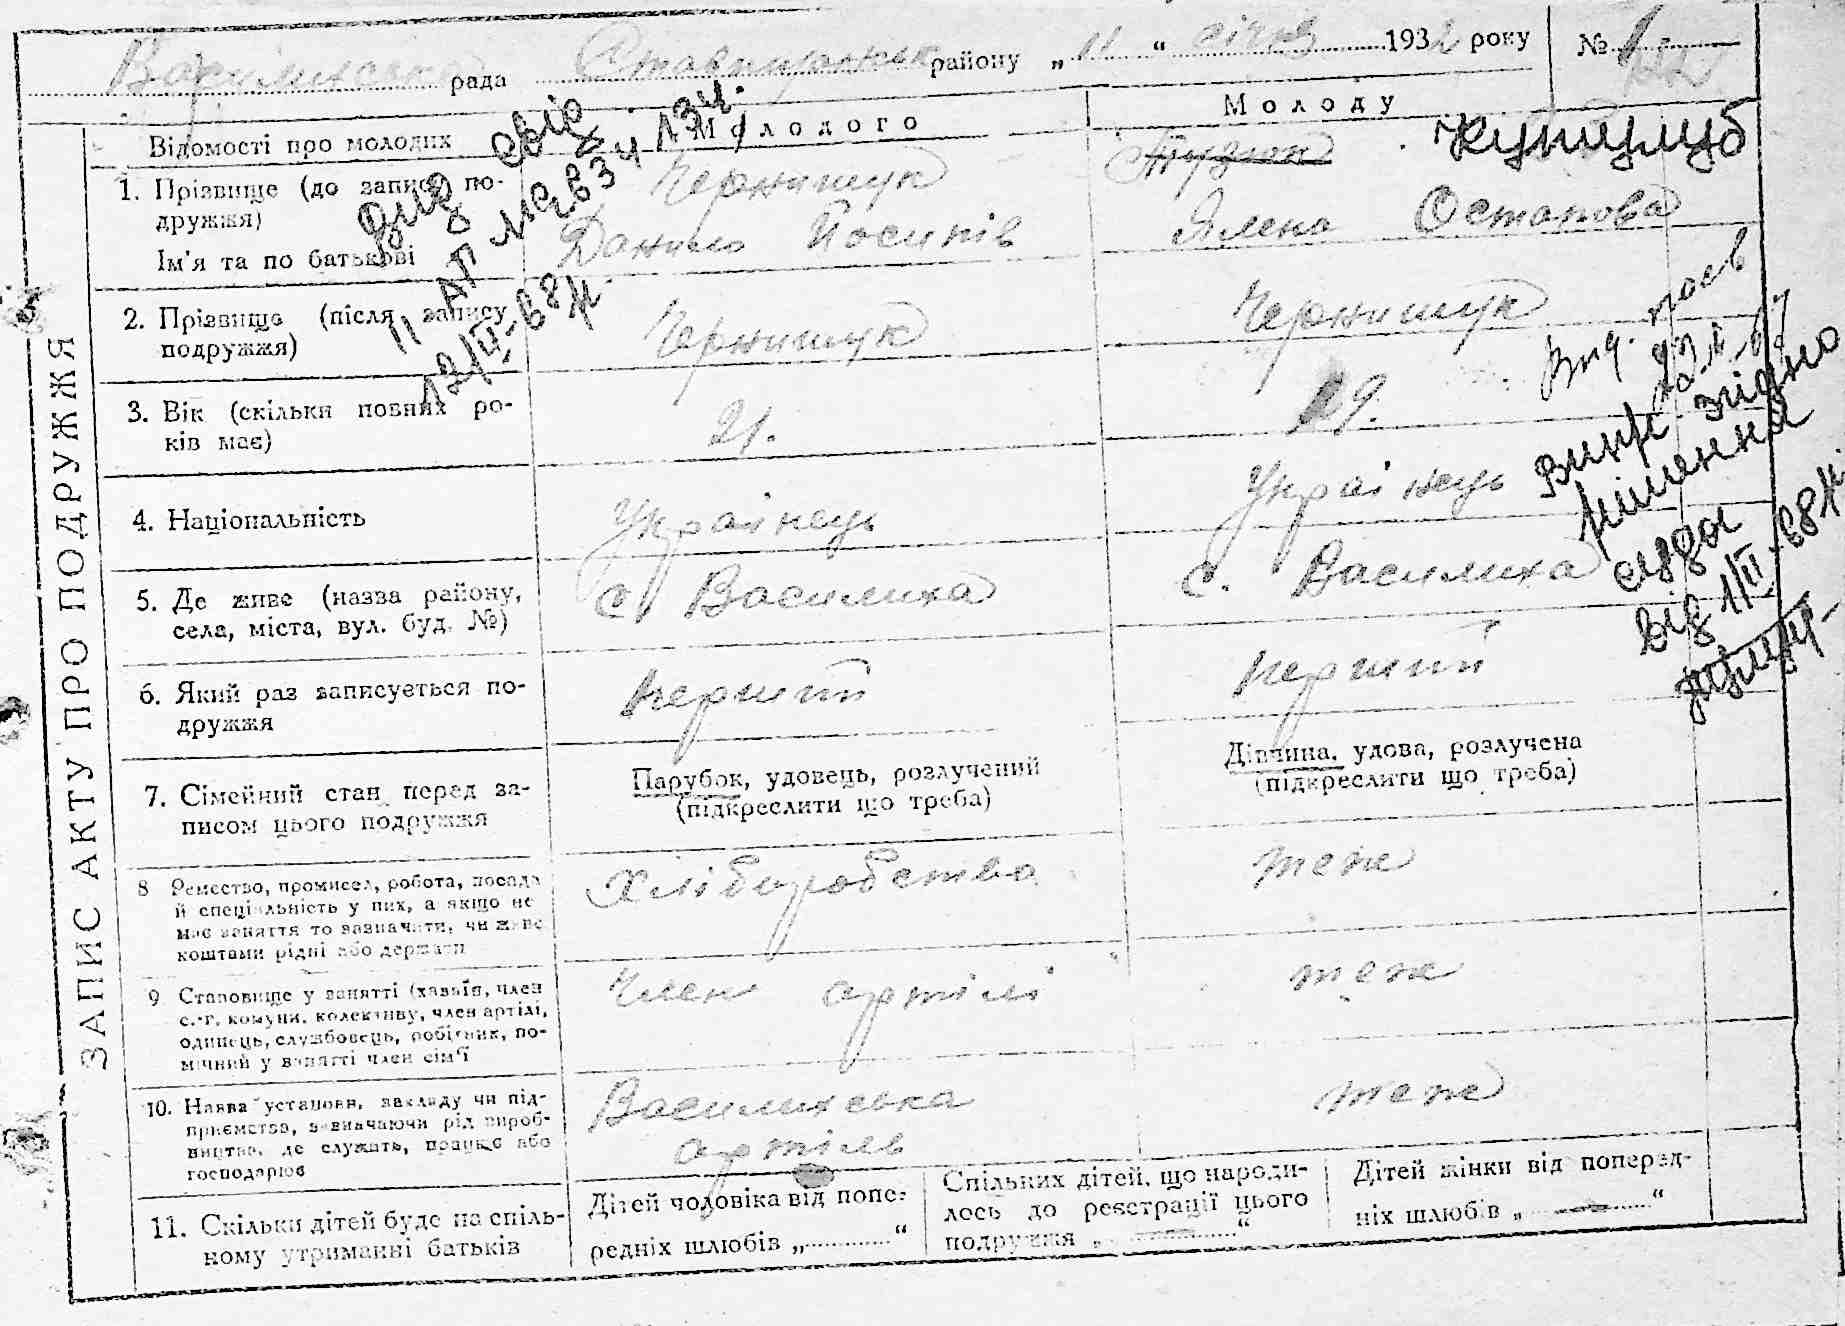 Василихська рада Ставищанськ району „11“ січня 1932 року №
ЗАПИС АКТУ ПРО ПОДРУЖЖЯ
Відомості про молодих
Молодого
Молоду
1. Прізвище (до запису по-
дружжя)
Ім'я та по батькові
Чернишук
Данило Йосипів
Ялена Остапова
2. Прізвище (після запису
подружжя)
Чернишук
Чернишук
3. Вік (скільки повних ро-
ків має)
21.
19.
4. Національність
Українець
Українець
5. Де живе (назва району,
села, міста, вул. буд. №)
с. Василиха
с. Василиха
6. Який раз записується по-
дружжя
перший
перший
7. Сімейний стан перед за-
писом цього подружжя
Парубок, удовець, розлучений
(підкреслити що треба)
Дівчина, удова, розлучена
(підкреслити що треба)
8 Ремество, промисел, робота, посада
й спеціяльність у них, а якщо не
має заняття то зазначити, чи живе
коштами рідні або держави
Хліборобство
теж
9 Становище у занятті (хазяїн, член
с.-г. комуни, колективу, член артілі,
одинець, службовець, робітник, по-
мічний у занятті член сім'ї
Член артілі
теж
10. Назва установи, закладу чи під-
приємства, зазначаючи рід вироб-
ництва, де служить, працює або
господарює
Василихська
артіль
теж
11. Скільки дітей буде на спіль-
ному утриманні батьків
Дітей чоловіка від попе-
редніх шлюбів „ “
Спільних дітей, що народи-
лось до реєстрації цього
подружжя „ — “
Дітей жінки від поперед-
ніх шлюбів „ — “
вид свід
12/IV-68 р.
згідно
рішення
суда
від 1/IV-68 р.